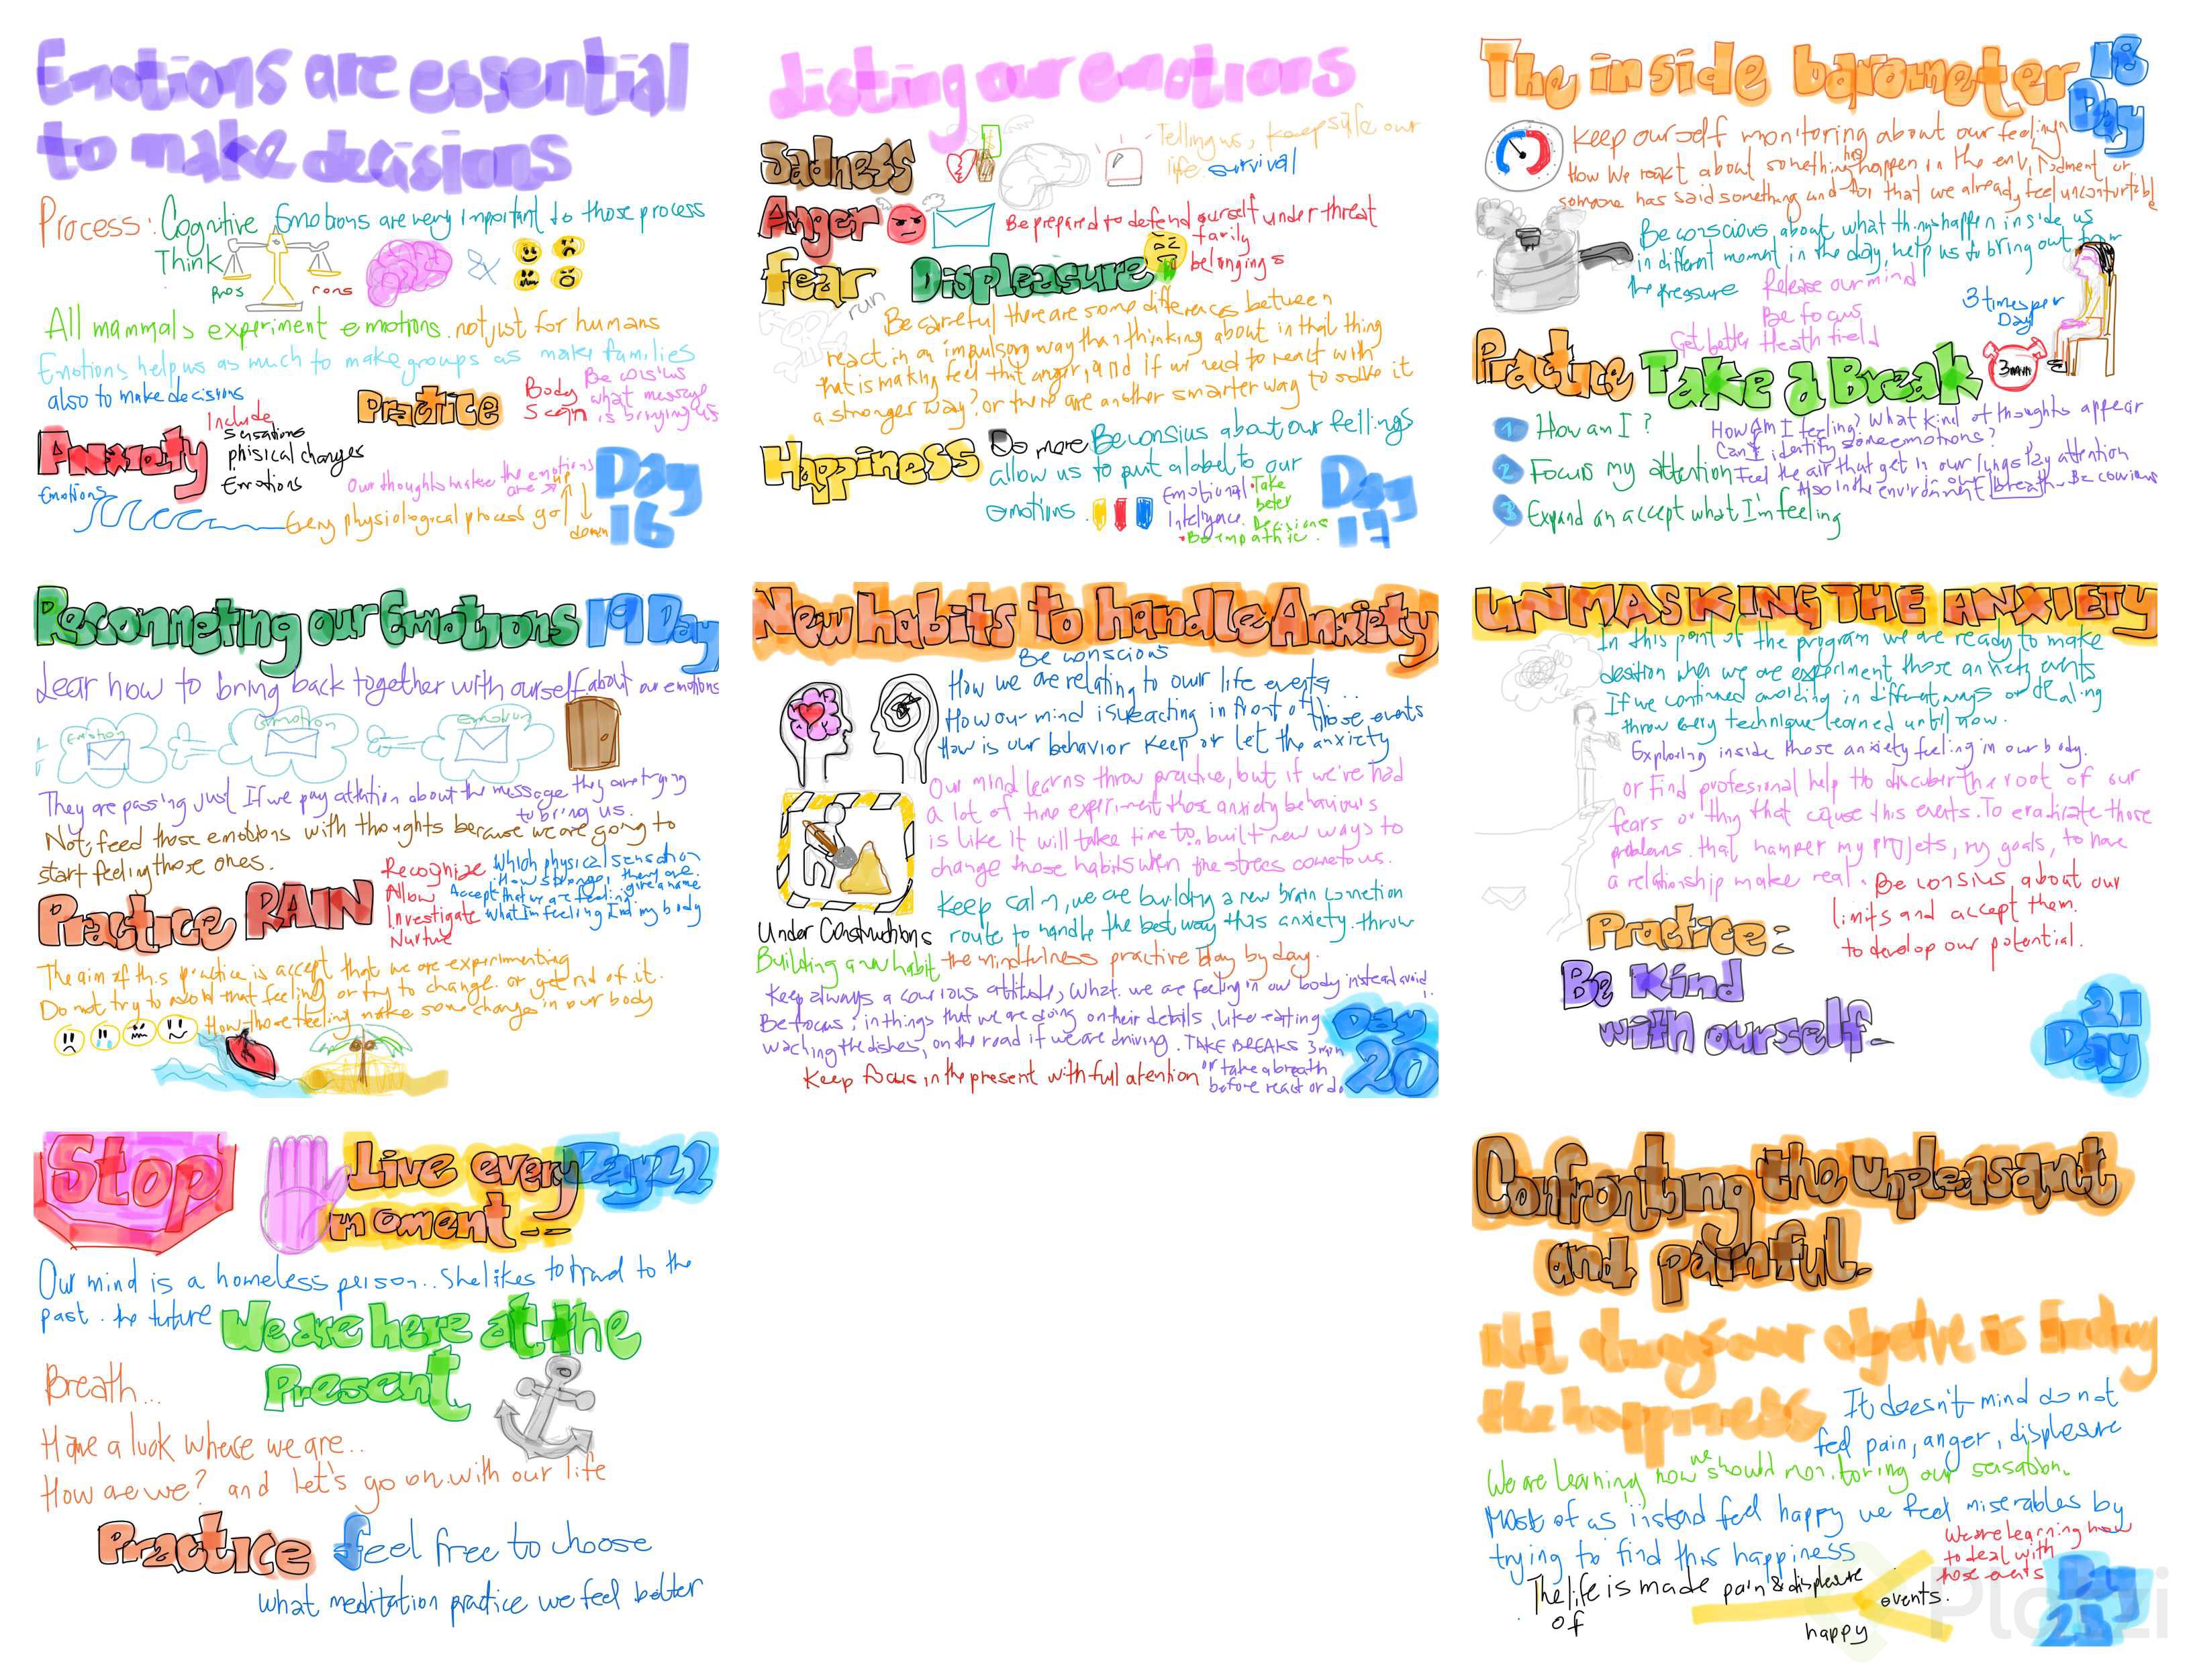 Emotions are essential
to make decisions
Process: Cognitive Emotions are very important to those process
Think
pros cons
All mammals experiment emotions. not just for humans
Emotions help us as much to make groups as make families
also to make decisions
Practice
Body Scan
Be consius what message is bringing us
Anxiety
Include
sensations
phisical changes
Emotions
Emotions
Our thoughts makes the emotions are up
Every physiological process go down
Day 16
Listing our emotions
Sadness
Telling us, keep safe our
life survival
Anger
Be prepared to defend ourself under threat
family
belongings
Fear
run
Displeasure
Be careful there are some differences between
react in an impulsory way than thinking about in that thing
that is making feel that anger, and if we need to react with
a stronger way? or there are another smarter way to solve it
Happiness
Do more
Be consius about our fellings
allow us to put a label to our
emotions.
Emotional Inteligence.
• Take beter Decisions
• Be empathic.
Day 17
The inside barometer
18 Day
Keep ourself monitoring about our feelings
How we react about something has happen in the or
someone has said something and for that we already feel unconfurtible
Be conscious about what things happen inside us
in different moment in the day, help us to bring out from
the pressure
Release our mind
Be focus
Get better Heath field
3 times per Day
Practice Take a Break
3 min
1 How am I?
How Am I feeling? What kind of thoughts appear
Can I identify some emotions?
2 Focus my attention
Feel the air that get in our lungs Pay attention
in our breath - Be courious
Also in the environment
3 Expand an accept what I'm feeling
Reconneting our Emotions 19 Day
Lear how to bring back together with ourself about our emotions
Emotion
emotion
emotion
They are passing just If we pay attention about the message they are trying
to bring us.
Not, feed those emotions with thoughts because we are going to
start feeling those ones.
Practice RAIN
Recognize Which physical sensation
How stronger they are.
give a name
Allow Accept that we are feeling
Investigate What I'm feeling And my body
Nurture
The aim of this practice is accept that we are experimenting
Do not try to avoid that feeling or try to change. or get rid of it.
How those feeling make some changes in our body
New habits to handle Anxiety
Be conscious
How we are relating to our life events...
How our mind is reacting in front of those events
How is our behavior Keep or let the anxiety
Our mind learns throw practice, but if we've had
a lot of time experiment those anxiety behaviours
is like It will take time to.. built new ways to
change those habits when the stress come to us.
Keep calm, we are building a new brain connetion
route to handle the best way this anxiety. throw
Under Constructions
Building a new habit the mindfulness practive Day by day.
Keep always a courious attitude, What we are feeling in our body instead avoid
Be focus; in things that we are doing on their details, like eating
waching the dishes, on the road if we are driving. TAKE BREAKS 3 min
or take a breath
before react or do.
Keep focus in the present with full atention
Day 20
UNMASKING THE ANXIETY
In this point of the program we are ready to make
desition when we are experiment those anxiety events
If we continued avoiding in different ways or dealing
throw every technique learned until now.
Exploring inside those anxiety feeling in our body.
or find profesional help to discuber the root of our
fears or thing that cause this events. To eradicate those
problems. that hamper my projets, my goals, to have
a relationship make real.
Be consius about our
limits and accept them.
to develop our potential.
Practice:
Be Kind
with ourself.
21 Day
Stop
Live every
moment
Day 22
Our mind is a homeless person.. She likes to travel to the
past. the future
We are here at the
Present
Breath...
Have a look where we are..
How are we? and let's go on with our life
Practice
feel free to choose
what meditation practice we feel better
Confronting the unpleasant
and painful.
is finding
the happiness
It doesn't mind do not
feel pain, anger, displeasure
We are learning how we should monitoring our sensation.
Most of us instead feel happy we feel miserables by
trying to find this happiness
We are learning how
to deal with
those events
The life is made of
pain & displeasure
happy
events.
Day 23
Platzi